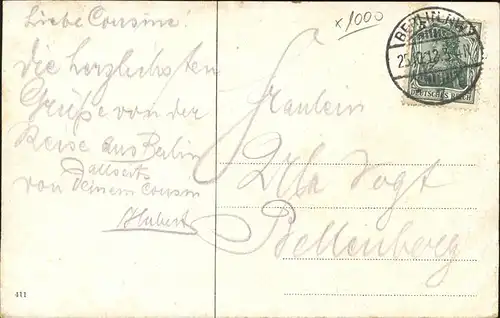 Liebe Cousine!
Die herzlichsten
Grüße von der
Reise aus Berlin
allseits
von Deinem Cousin
Hubert
x1000
BERLIN NW
25. 12. 12
DEUTSCHES REICH
Fräulein
Vogt
Bellenberg
411